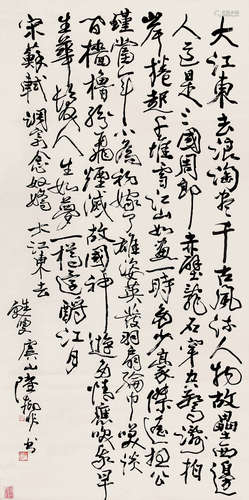 大江東去浪淘盡千古風流人物故壘西邊
人道是三國周郎赤壁亂石穿空驚濤拍
岸捲起千堆雪江山如畫一時多少豪傑遙想公
瑾當年小喬初嫁了雄姿英發羽扇綸巾笑談
間檣櫓灰飛煙滅故國神遊多情應笑我早
生華髮人生如夢一樽還酹江月
宋蘇軾調寄念奴嬌 大江東去
虞山 書